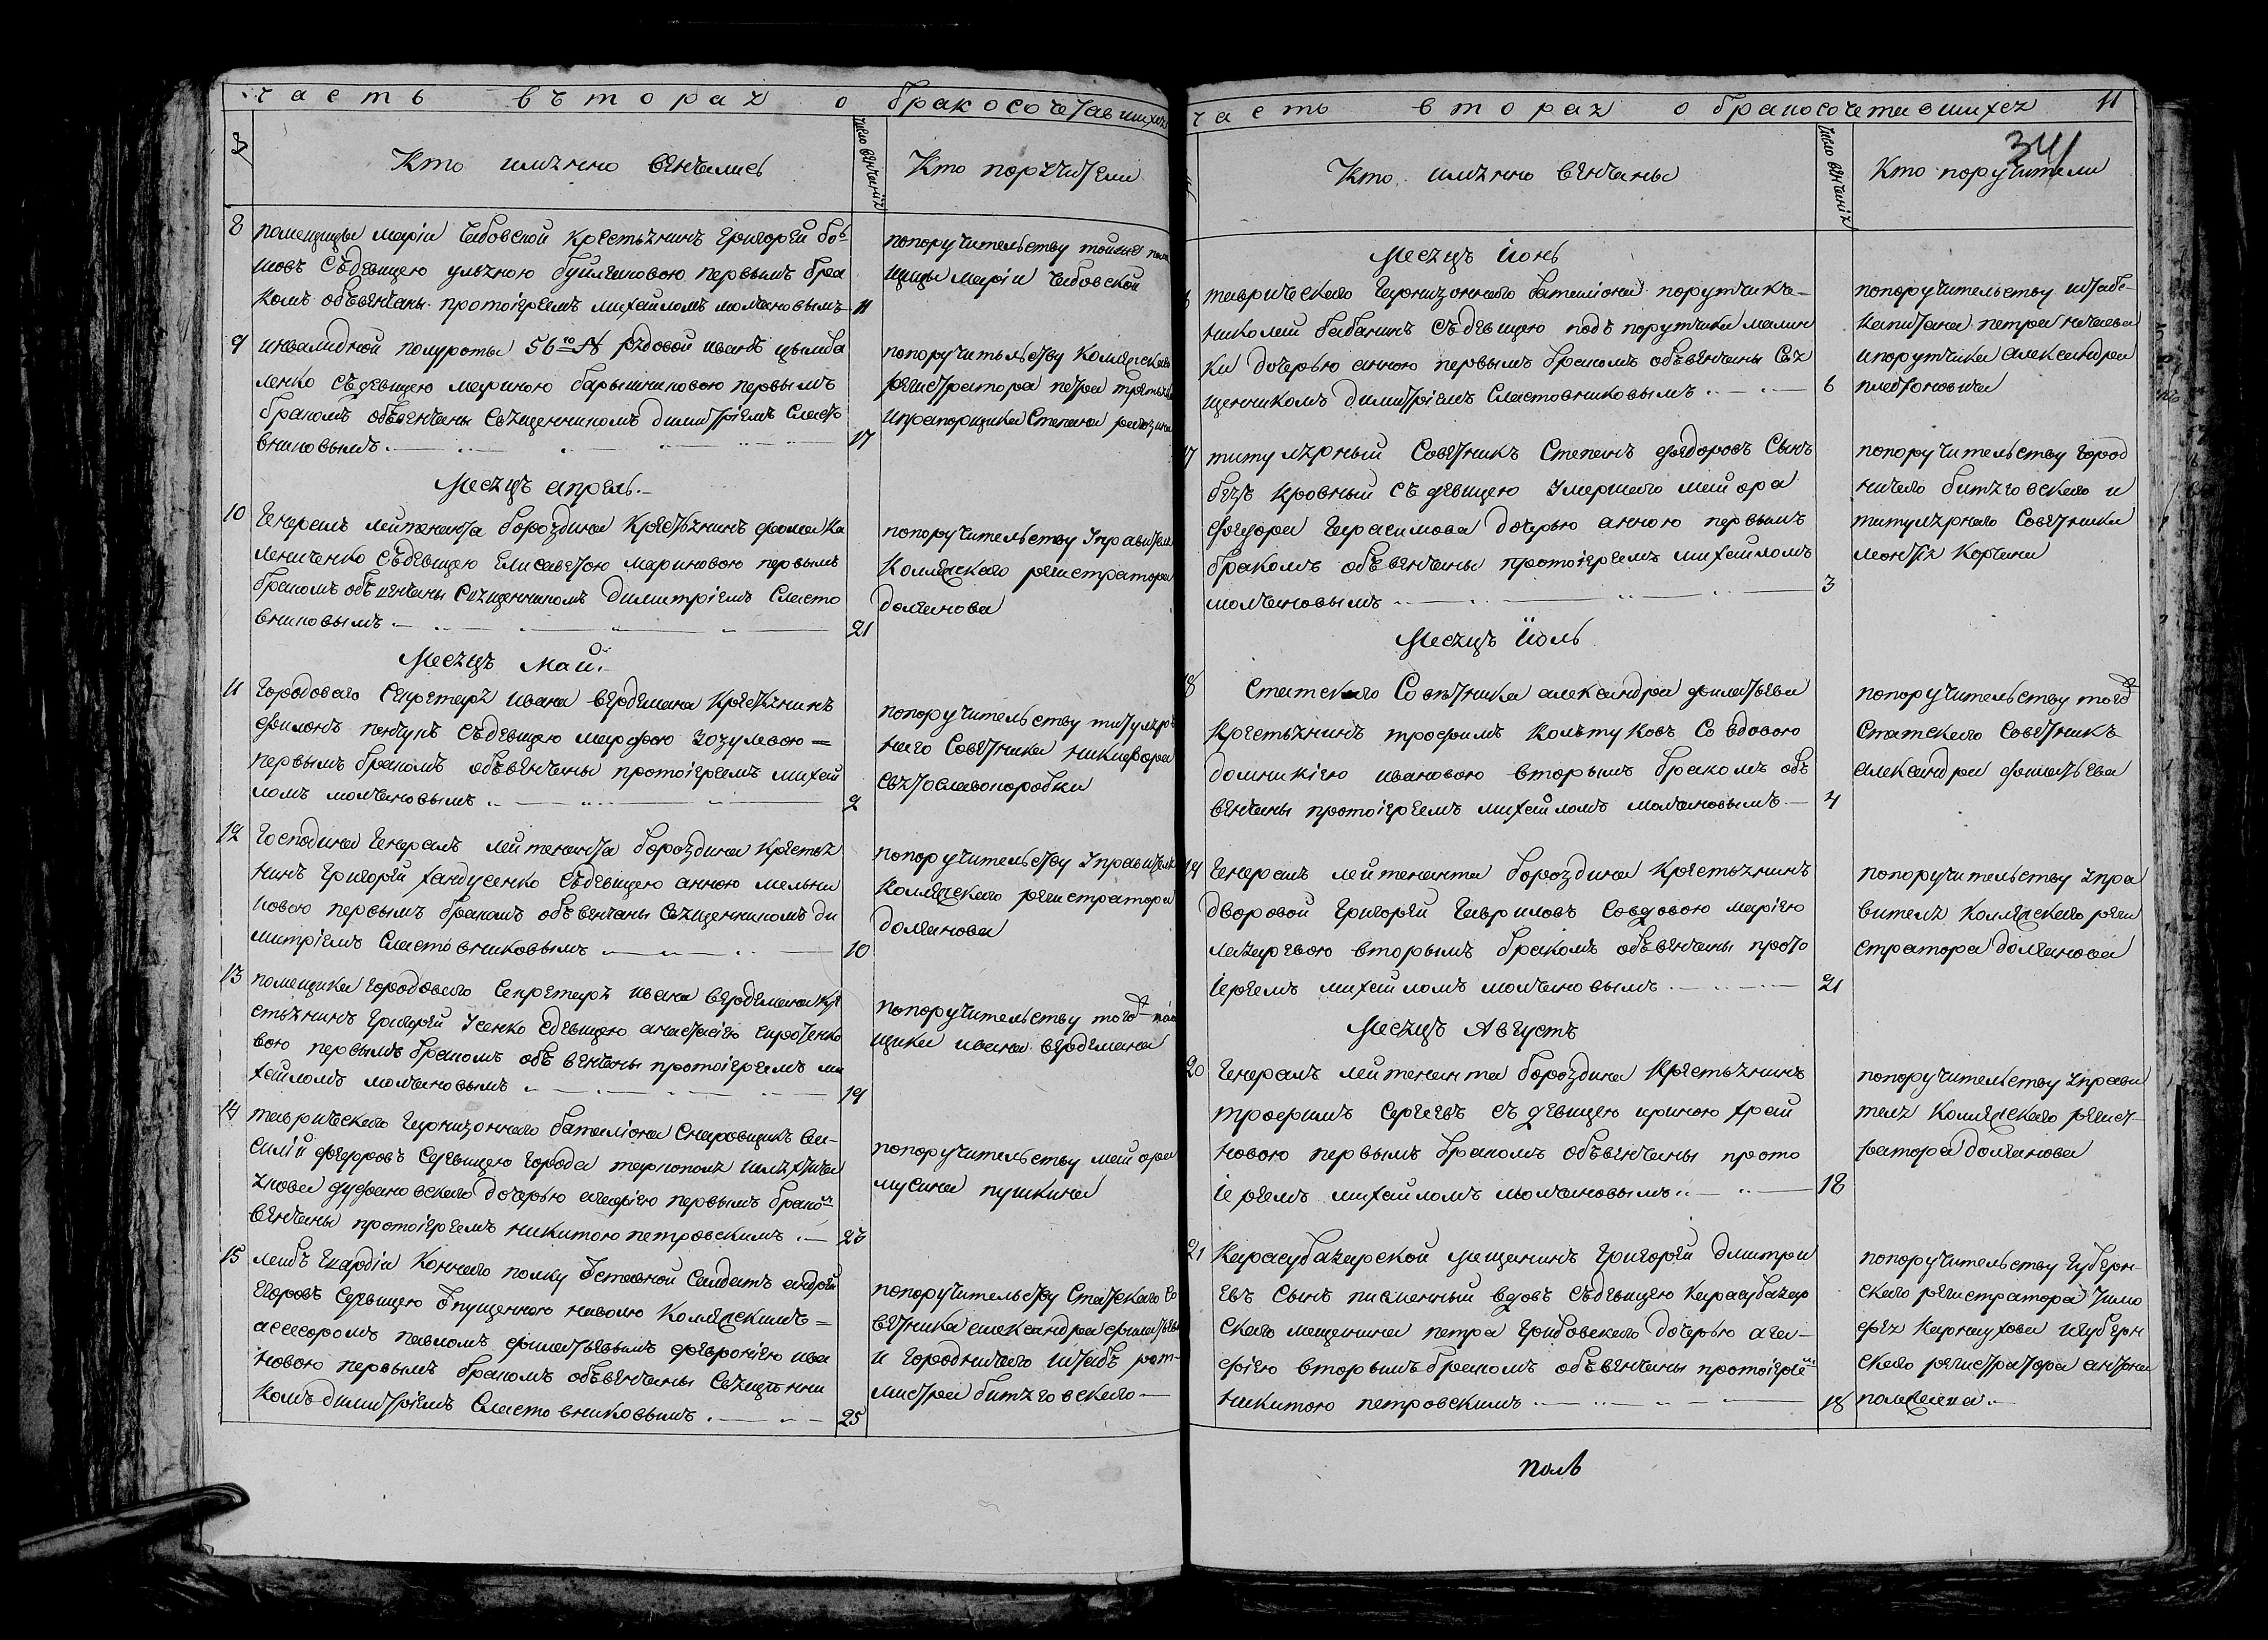 часть въторая о бракосочетавшихся
№
Кто имянно венчались
Число венчания
Кто поручители
8 помещицы марiи Чабовской крестьянинъ григорей бо
шовъ съдевицею ульяною первымъ бра
комъ обьвенчаны протоiереемъ михаиломъ молчановымъ 11
попоручительству тойже пом
щицы марiи Чабовской
9 инвалидной полуроты 56го № рядовой иванъ цымба
ленко съдевицею мариною барышниковою первымъ
бракомъ обьвенчаны священникомъ димитрiемъ сласто
вниковымъ 17
попоручительству коллескаго
регистратора петра
ипрапорщика степана
Месяцъ апрель
10 генералъ лейтенанта бороздина крестьянинъ фома ка
лениченко съдевицею елисаветою мариновою первымъ
бракомъ обьвенчаны священникомъ димитрiемъ сласто
вниковымъ 21
попоручительству управителя
коллескаго регистратора
долганова
Месяцъ май
11 городоваго секретаря ивана вердемана крестьянинъ
филонъ пенчукъ съдевицею марфою зозулевою
первымъ бракомъ обьвенчаны протоiереемъ михаи
ломъ молчановымъ 2
попоручительству титуляр
наго советника никифора
святославопоробки
12 господина генералъ лейтенанта бороздина крестья
нинъ григорей хандусенко съдевицею анною мельни
ковою первымъ бракомъ обьвенчаны священникомъ ди
митрiемъ сластовниковымъ 10
попоручительству управителя
коллескаго регистратора
долганова
13 помещика городоваго секретаря ивана вердемана кре
стьянинъ григорей усенко сдевицею анастасiею сиротенко
вою первымъ бракомъ обьвенчаны протоiереемъ ми
хаиломъ молчановымъ 19
попоручительству того пом
щика ивана вердемана
14 таврическаго гарнизоннаго баталiона васи
силiй федоровъ сдевицею города тарнополя
дочерью агафiею первымъ брако
венчаны протоiереемъ никитою петровскимъ
попоручительству маiора
мусина пушкина
15 лейбъ гвардiи коннаго полку отставной салдатъ андрей
егоровъ сдевицею отпущенною наволю коллескимъ
асессоромъ павломъ филатьевымъ февронiею ива
новою первымъ бракомъ обьвенчаны священни
комъ димитрiемъ сластовниковымъ 25
попоручительству статскаго со
ветника александра филатьева
и городничаго штабъ рот
мистра битяговскаго
часть вторая о бракосочетавшихся 11
341
Кто имянно венчаны
Число венчания
Кто поручители
Месяцъ iюнь
таврическаго гарнизоннаго баталiона порутчикъ
николай бабанинъ съдевицею подъ порутчика малин
ки дочерью анною первымъ бракомъ обьвенчаны свя
щенникомъ димитрiемъ сластовниковымъ 6
попоручительству штабс
капитана петра нечаева
ипорутчика александра
платоновича
титулярный советникъ степанъ федоровъ сынъ
безъ кровный съ девицею умершаго маiора
федора герасимова дочерью анною первымъ
бракомъ обьвенчаны протоiереемъ михаиломъ
молчановымъ 3
попоручительству город
ничаго битяговскаго и
титулярнаго советника
леонтiя корчана
Месяцъ iюль
статскаго советника александра филатьева
крестьянинъ трофимъ колтуковъ со вдовою
домникiею ивановою вторымъ бракомъ объ
венчаны протоiереемъ михаиломъ молчановымъ 4
попоручительству тогож
статскаго советникъ
александра филатьева
19 генералъ лейтенанта бороздина крестьянинъ
дворовой григорей гавриловъ совдовою марiею
лазаревою вторымъ бракомъ обьвенчаны прото
iереемъ михаиломъ молчановымъ 21
попоручительству упра
вителя коллескаго реги
стратора долганова
Месяцъ Августъ
20 генералъ лейтенанта бороздина крестьянинъ
трофимъ сергеевъ съ девицею ириною храп
новою первымъ бракомъ обьвенчаны прото
iереемъ михаиломъ молчановымъ 18
попоручительству управи
теля коллескаго регист
ратора долганова
21 карасубазарской мещанинъ григорей дмитри
евъ сынъ писменный вдовъ съдевицею карасубазар
скаго мещанина петра грибовскаго дочерью ага
фiею вторымъ бракомъ обьвенчаны протоiерее
никитою петровскимъ 18
попоручительству губерн
скаго регистратора тимо
фея карнаухова игуберн
скаго регистратора антона